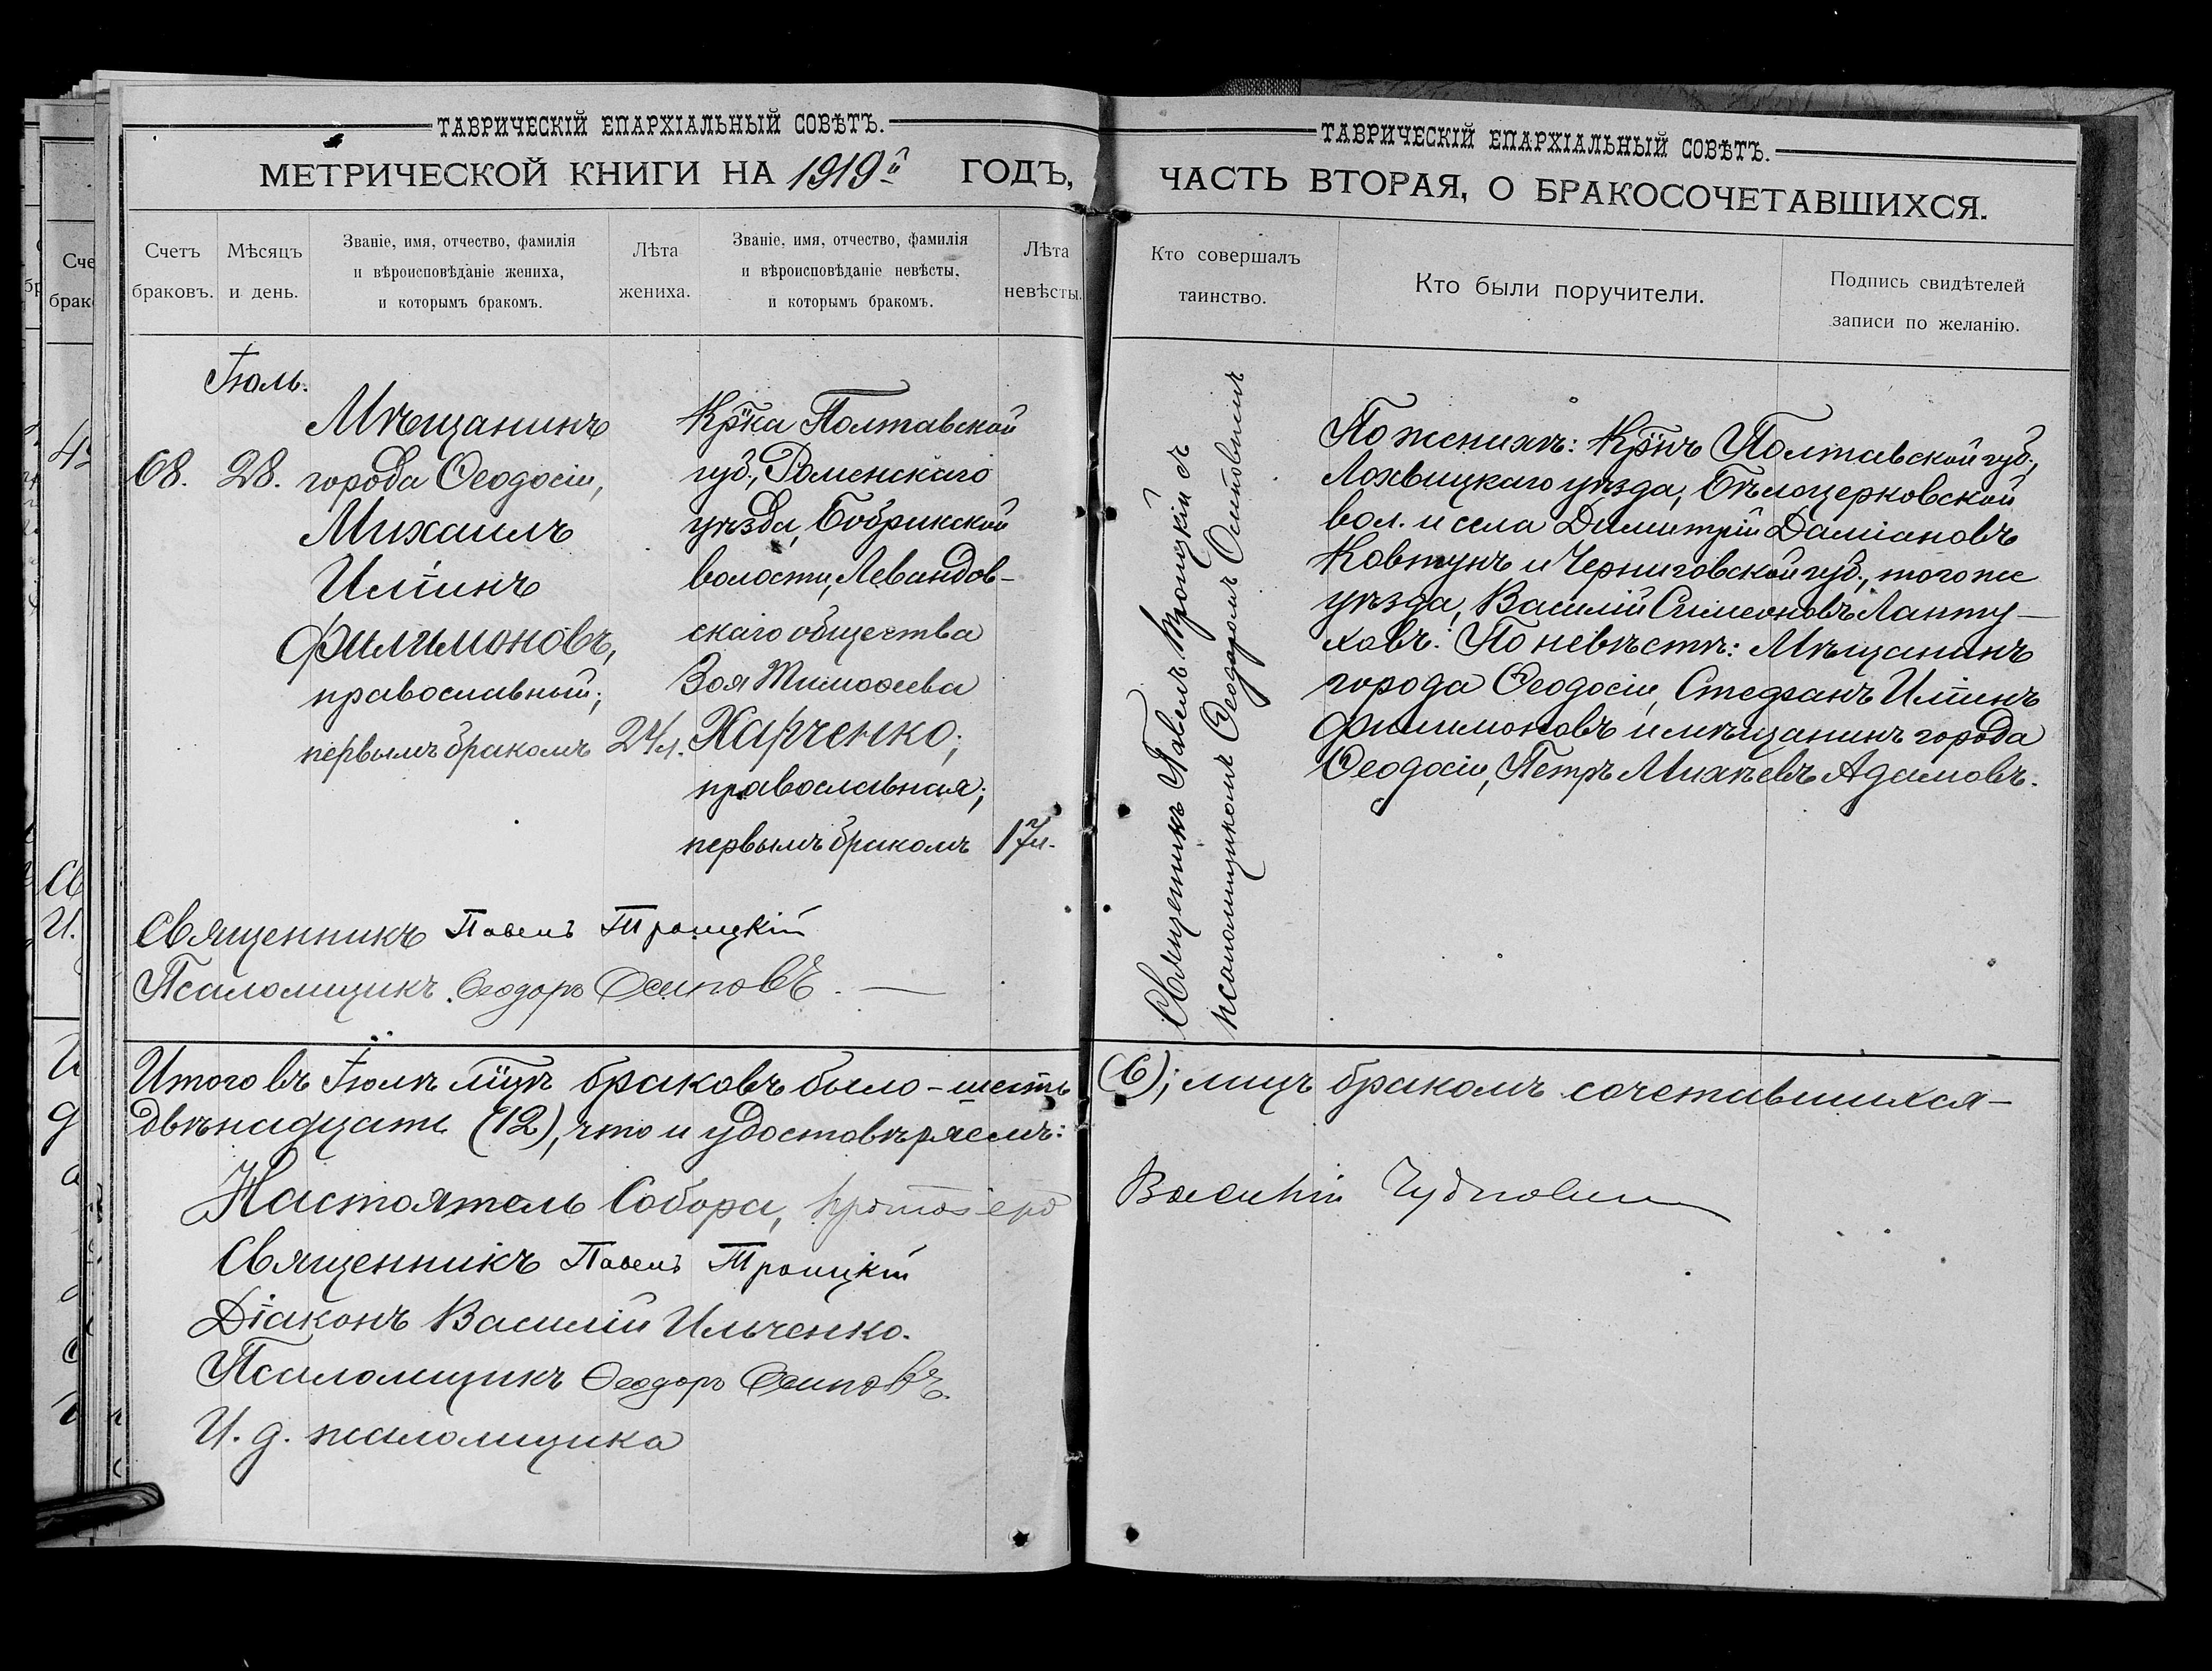 ТАВРИЧЕСКІЙ ЕПАРХІАЛЬНЫЙ СОВѢТЪ.
МЕТРИЧЕСКОЙ КНИГИ НА 1919й ГОДЪ,
Счетъ
браковъ.
Мѣсяцъ
и день.
Званіе, имя, отчество, фамилія
и вѣроисповѣданіе жениха,
и которымъ бракомъ.
Лѣта
жениха.
Званіе, имя, отчество, фамилія
и вѣроисповѣданіе невѣсты,
и которымъ бракомъ.
Лѣта
невѣсты.
68.
Іюль.
28.
Мѣщанинъ
города Ѳеодосіи,
Михаилъ
Иліинъ
Филимоновъ,
православный;
первымъ бракомъ
24 л.
Кр̃ка Полтавской
губ., Роменскаго
уѣзда, Бобрикской
волости, Левандов-
скаго общества
Зоя Тимоѳеева
Харченко;
православная;
первымъ бракомъ
17 л.
Священникъ Павелъ Троицкій
Псаломщикъ Ѳеодоръ Осиповъ. —
Итого въ Іюлѣ м̃цѣ браковъ было - шесть
двѣнадцать (12), что и удостовѣряемъ:
Настоятель Собора, протоіерей
Священникъ Павелъ Троицкій
Діаконъ Василій Ильченко.
Псаломщикъ Ѳеодоръ Осиповъ.
И. д. псаломщика
ТАВРИЧЕСКІЙ ЕПАРХІАЛЬНЫЙ СОВѢТЪ.
ЧАСТЬ ВТОРАЯ, О БРАКОСОЧЕТАВШИХСЯ.
Кто совершалъ
таинство.
Кто были поручители.
Подпись свидѣтелей
записи по желанію.
Священникъ Павелъ Троицкій съ
псаломщикомъ Ѳеодоромъ Осиповымъ
По женихѣ: Кр̃нъ Полтавской губ.,
Лохвицкаго уѣзда, Бѣлоцерковской
вол. и села Димитрій Даміановъ
Ковтунъ и Черниговской губ., того же
уѣзда, Василій Симеоновъ Лапту-
ховъ. По невѣстѣ: Мѣщанинъ
города Ѳеодосіи, Стефанъ Иліинъ
Филимоновъ и мѣщанинъ города
Ѳеодосіи, Петръ Михѣевъ Адамовъ.
(6); лицъ бракомъ сочетавшихся -
Василій